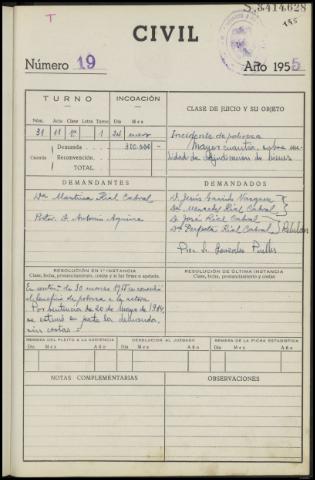 S.8414.628
T
195
CIVIL
Número 19
Año 1955
TURNO
INCOACIÓN
CLASE DE JUICIO Y SU OBJETO
Núm. Año Clase Letra Tomo Día Mes
31 11 1º 1 24 enero
Cuantía
Demanda 300.000
Reconvención
TOTAL
Incidente de pobreza
Mayor cuantía, sobre nu-
lidad de adjudicación de bienes
DEMANDANTES
DEMANDADOS
Dª Martina Rial Cabral
Proc. D. Antonio
D. Jesús Garrido Vazquez
Dª Mercedes Rial Cabral
D. José Rial Cabral
Dª Perfecta Rial Cabral
Rebeldes
Proc. Sr. González Puelles
RESOLUCIÓN EN 1ª INSTANCIA
Clase, fecha, pronunciamiento, costas y si fue firme o apelada.
RESOLUCIÓN DE ÚLTIMA INSTANCIA
Clase, fecha, pronunciamiento y costas
En sentª de 30 marzo 1955 se concedió
el beneficio de pobreza a la actora
Por sentencia de 20 de Mayo de
se estimó en parte la demanda,
sin costas
REMESA DEL PLEITO A LA AUDIENCIA
DEVOLUCIÓN AL JUZGADO
REMESA DE LA FICHA ESTADÍSTICA
Día Mes Año Día Mes Año Día Mes Año
NOTAS COMPLEMENTARIAS
OBSERVACIONES